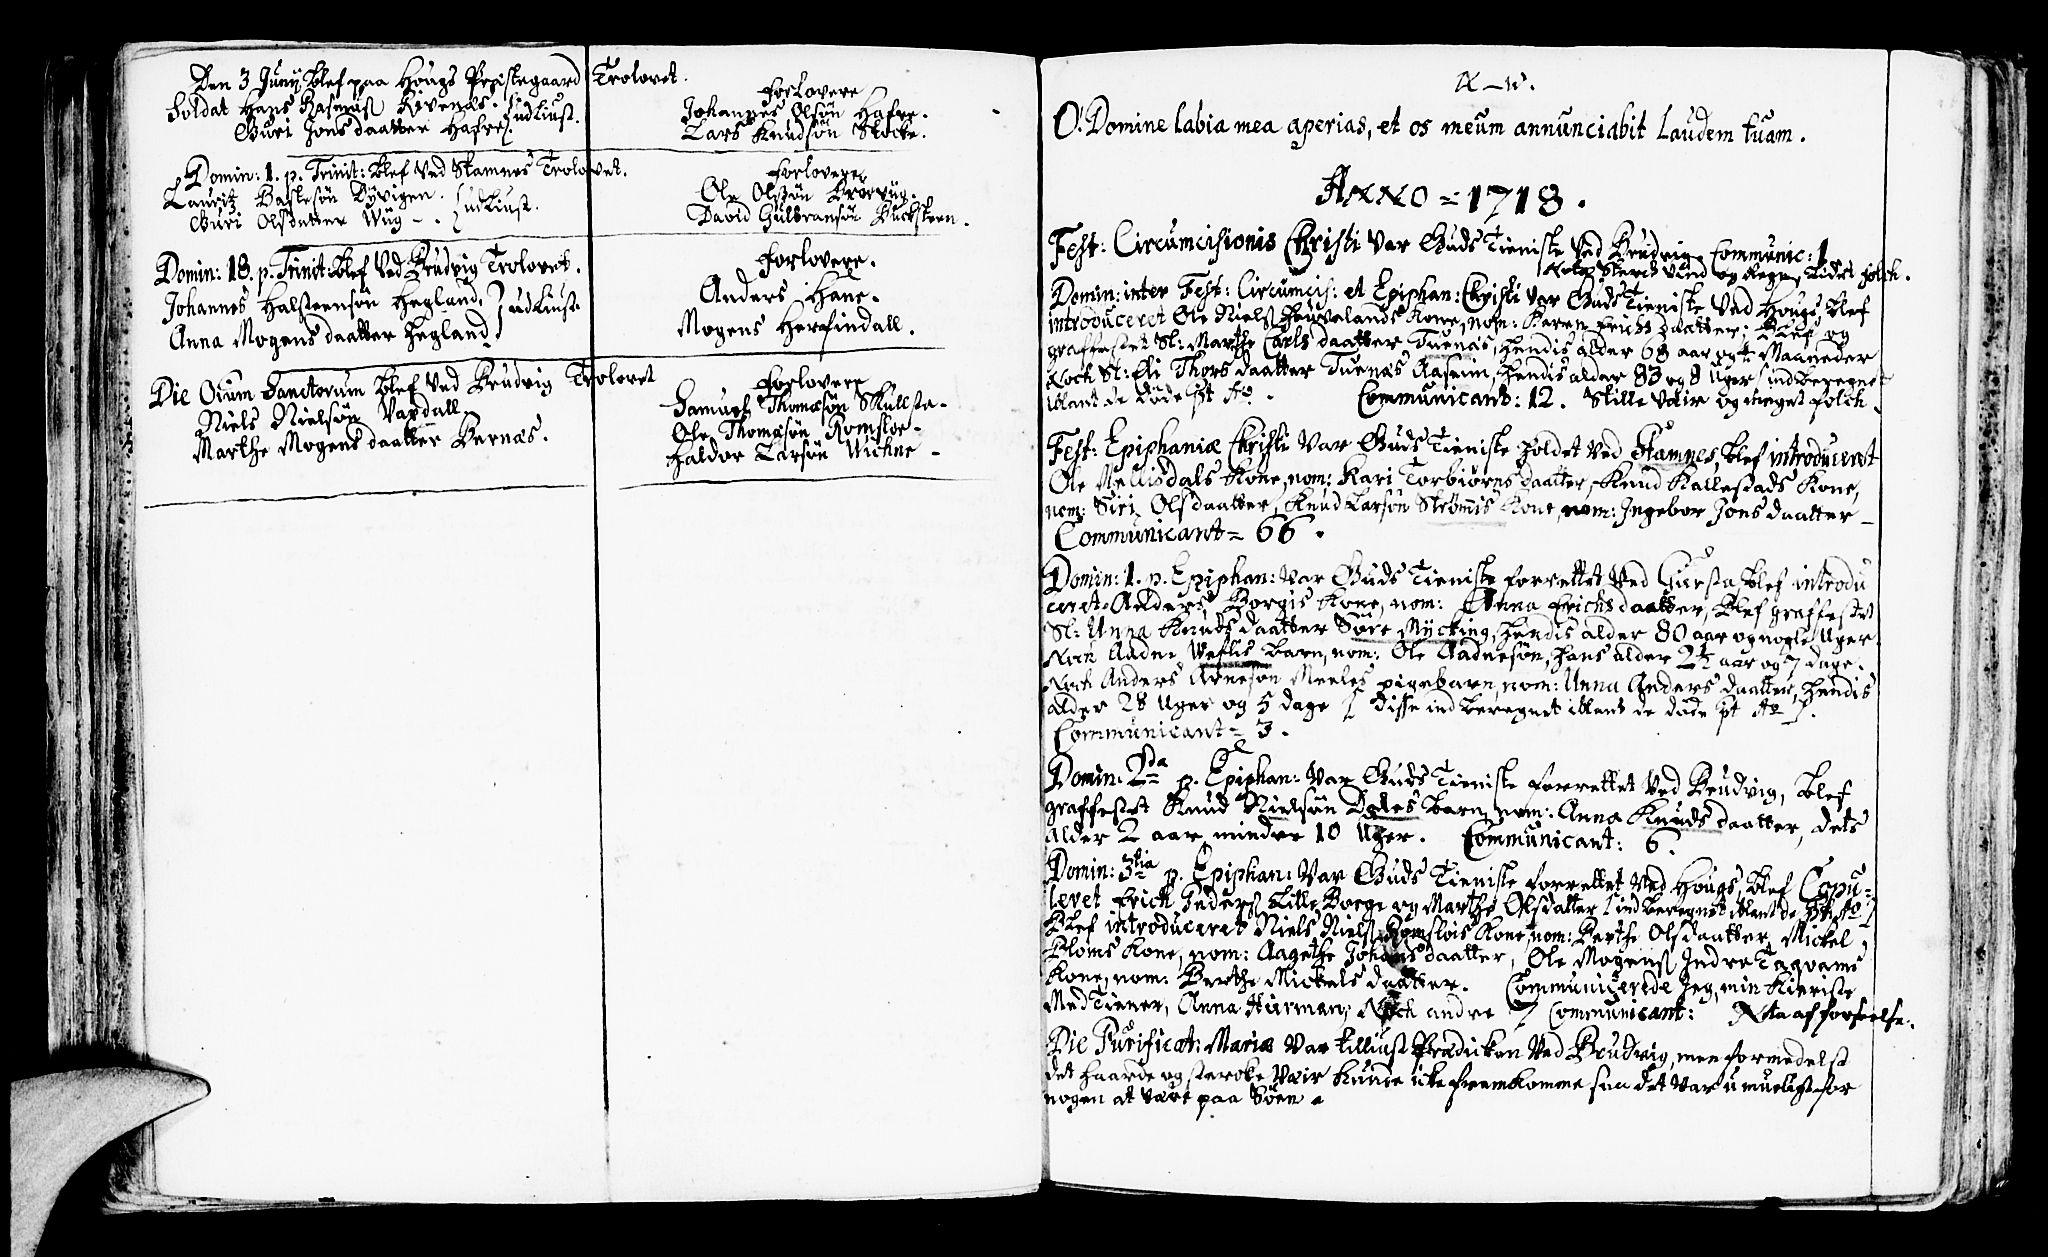 Den 3 Junij blef paa Hougs Prestegaard Trolovet.
Soldat Hans Rasmuss Rivenæs. udliust.
Guri Jons daatter Hafre
Forlovere
Johannes Olsøn Hafre.
Lars Knudsøn Stocke.
Domin: 1. p. Trinit: blef ved Stamnes Trolovet.
Lauritz Baltesøn Dyvigen.
Guri Olsdatter Wug - . udliust.
Forlovere
Ole Olsøn
David Gulbransøn Bucksteen.
Domin: 18. p. Trinit: blef ved Brudvig Trolovet.
Johannes Halsteensøn Hegland, udliust
Anna Mogens daatter Hegland
Forlovere.
Anders Hane.
Mogens Herfindall.
Die Oium Sanctorum blef ved Brudvig Trolovet
Niels Nielsøn Vaxdall
Marthe Mogens daatter Bernæs.
Forlovere
Samuel Thomæsøn Skulsta-
Ole Thomæsøn Romsloe-
Haldor Larsøn Wichne -
O! Domine labia mea aperias, et os meum annunciabit Laudem tuam.
ANNO = 1718.
Fest: Circumcisionis Christi var Guds Tieniste ved Brudvig. Communic: 1
sterck vind og Regn, lidet folch.
Domin: inter Fest: Circumcis: et Epiphan: Christi var Guds Tieniste ved Hougs, blef
introduceret Ole Nielss Kone, nom: Karen Erichs daatter; blef og
graffestet Sl: Marthe Carls daatter Tuenæs, hendis alder 68 aar og Maaneder
Noch Sl: Eli Thors daatter Tuenæs Aaseim, hendis alder 83 og 8 Uger indberegnet
iblant de døde pt Ao. Communicant: 12. Stille vær og meget folch
Fest: Epiphaniæ Christi var Guds Tieniste holdet ved Stamnes, blef introduceret
Ole Kone, nom: Kari Torbiørns daatter, Knud Kallestads Kone,
nom: Siri Olsdaatter, Knud Larsøn Strømis Kone, nom: Ingebor Jons daatter
Communicant = 66.
Domin: 1. p. Epiphan: var Guds Tieniste forrettet ved blef introdu
ceret Anders Borgis Kone, nom: Anna Erichs daatter, blef graffestet
Sl: Anna Knuds daatter Søre Mycking, hendis alder 80 aar og nogle Uger.
Noch Aadne Veflis barn, nom: Ole Aadnesøn, hans alder 2½ aar og 7 dage.
Noch Anders Arnesøn Meeles pigebarn, nom: Anna Anders daatter, hendis
alder 28 Uger og 5 dage disse indberegnet iblant de døde pt Ao
Communicant = 3.
Domin: 2da p. Epiphan: var Guds Tieniste forrettet ved Brudvig, blef
graffestet Knud Nielsøn Dales barn, nom: Anna Knuds daatter, dets
alder 2 aar mindre 10 Uger. Communicant: 6.
Domin: 3tia p. Epiphan: var Guds Tieniste forrettet ved Hougs, blef Copu-
leret Erich Peders Lille Borge og Marthe Olsdatter indberegnet iblant de pt Ao
Blef introduceret Niels Nielss Romslois Kone, nom: Berthe Olsdaatter, Mickel
Bloms Kone, nom: Aagethe Johans daatter, Ole Mogenss Indre Taqvams
Kone, nom: Berthe Mickels daatter. Communicerede Jeg, min Kieriste
Med Tiener, Anna Hurman, Noch andre 7 Communicant:
Die Purificat: Mariæ var tilliust Prædicken ved Brudvig, men formedelst
det haarde og stercke vær kunde icke fremkomme saa det var umueligt for
nogen at være paa Søen.